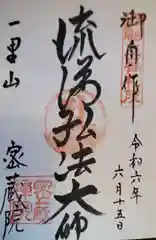 御自作
令和六年
六月十五日
流涕弘法大師
一里山
密蔵院